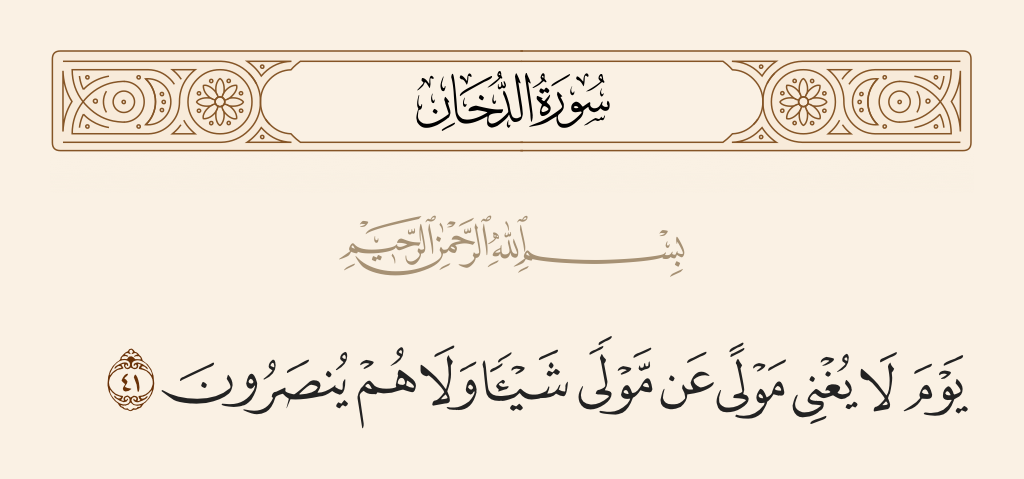 سُورَةُ الدُّخَانِ
بِسْمِ ٱللَّهِ ٱلرَّحْمَٰنِ ٱلرَّحِيمِ
يَوْمَ لَا يُغْنِى مَوْلًى عَن مَّوْلًى شَيْـًٔا وَلَا هُمْ يُنصَرُونَ ٤١